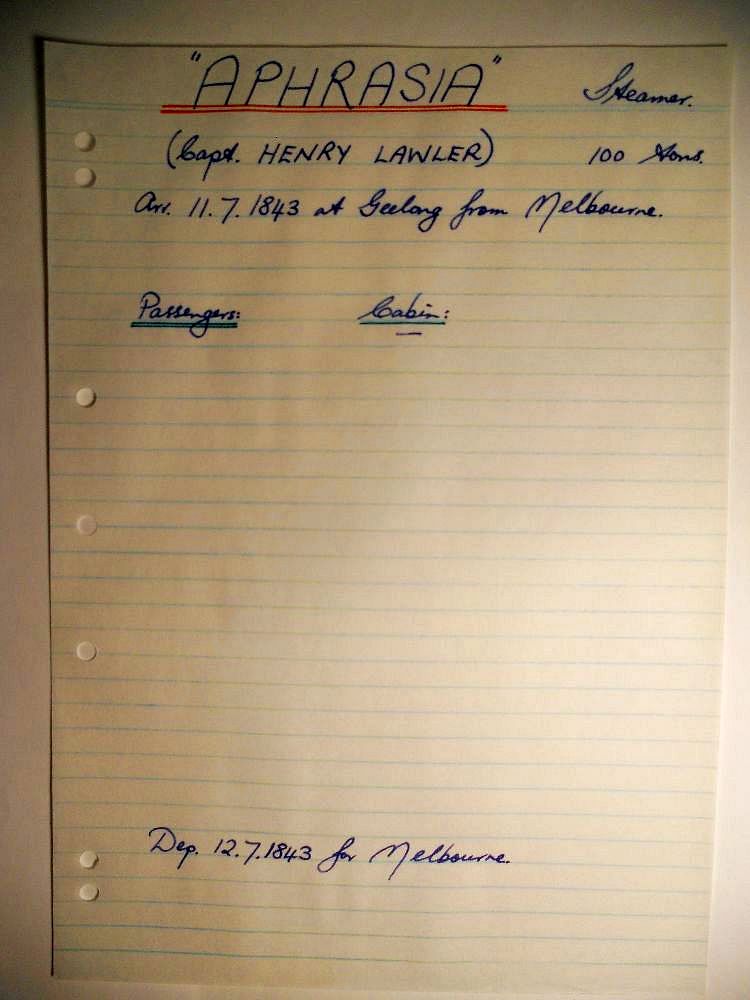 "APHRASIA" Steamer.
(Capt. HENRY LAWLER) 100 tons.
Arr. 11.7.1843 at Geelong from Melbourne.
Passengers: Cabin:
—
Dep. 12.7.1843 for Melbourne.